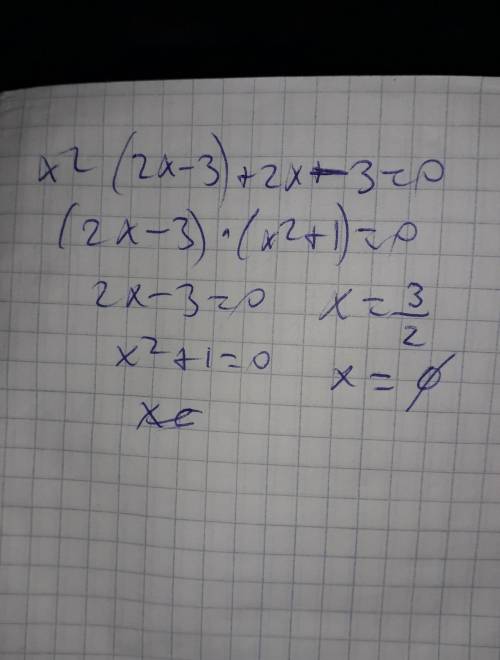 x² (2x-3)+2x-3=0
(2x-3)·(x²+1)=0
2x-3=0 x=3/2
x²+1=0 x=∅